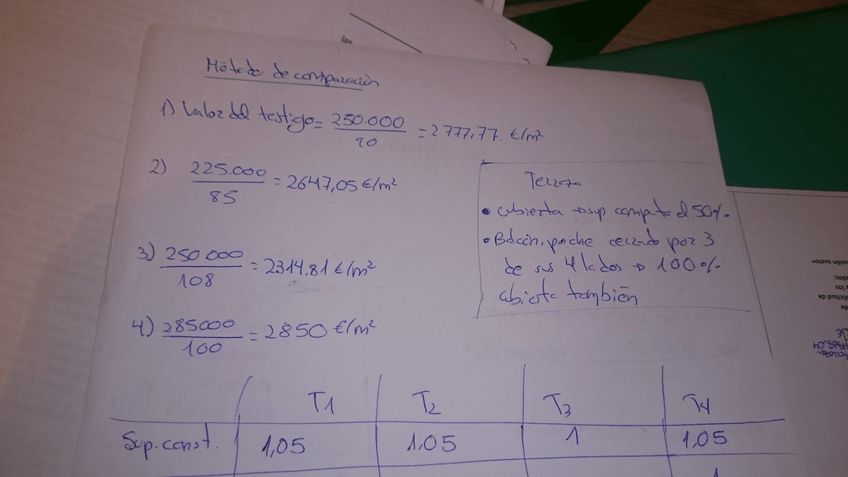 Método de comparación
1) Valor del testigo = 250.000 / 90 = 2777,77 €/m²
2) 225.000 / 85 = 2647,05 €/m²
Terraza
• cubierta → sup computa el 50%
• Balcón, porche cerrado por 3
de sus 4 lados → 100%
abierta también
3) 250.000 / 108 = 2314,81 €/m²
4) 285000 / 100 = 2850 €/m²
T1 T2 T3 T4
Sup. const. 1,05 1,05 1 1,05